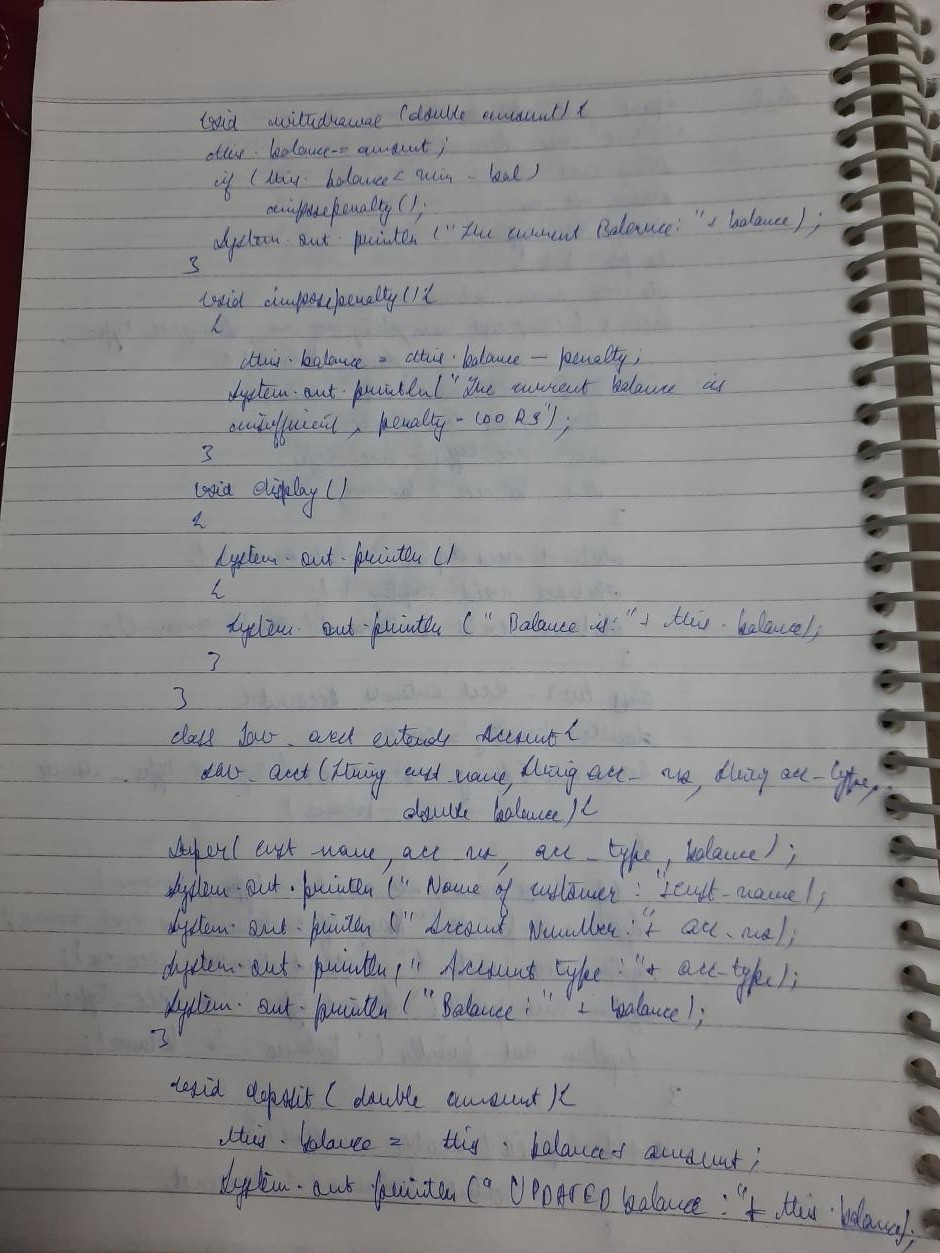 void withdrawal (double amount) {
this. balance-= amount;
if (this. balance < min - bal)
imposepenalty();
System. out. println ("The current Balance: "+ balance);
}
void imposepenalty() {
{
this. balance = this. balance - penalty;
System. out. println("The current balance is
insufficient, penalty - 100 RS");
}
void display ()
{
System. out. println ()
{
System. out. println (" Balance is: "+ this. balance);
}
}
class Sav _ acct extends Account {
sav _ acct (String cust_name, String acc _ no, String acc - type,
double balance) {
super( cust name, acc no, acc _ type, balance);
System. out. println (" Name of customer : "+cust-name);
System. out. println (" Account Number: "+ acc_no);
System. out. println, " Account type : "+ acc-type);
System. out. println ("Balance: " + balance);
}
void deposit ( double amount) {
this. balance = this . balance + amount;
System. out println (" UPDATED balance : "+ this. balance);